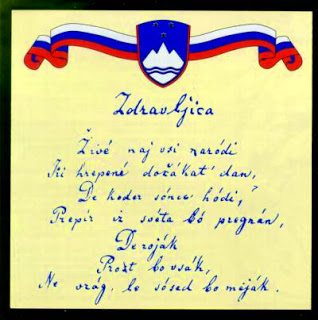 Zdravljica
Živé naj vsi naródi
Ki hrepené dočakat' dan,
De koder sónce hódi,
Prepír iz svéta bó pregnán,
De roják
Prost bo vsák,
Ne vrág, le sósed bo mêják.